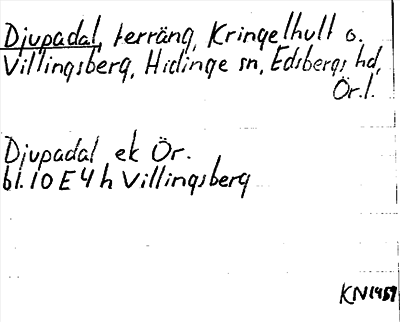 Djupadal, terräng, Kringelhult o.
Villingsberg, Hidinge sn, Edsbergs hd,
Ör.l.
Djupadal ek Ör.
bl. 10 E 4 h Villingsberg
KN1959